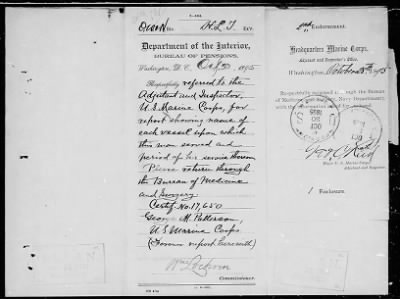 Department of the Interior,
BUREAU OF PENSIONS,
Washington, D. C., Oct 2 1895
Respectfully referred to the
Adjutant and Inspector,
U.S. Marine Corps, for
report showing name of
each vessel upon which
this man served and
period of his service thereon
Please return through
the Bureau of Medicine
and Surgery.
Certf. No. 17,650
George M. Patterson,
U S Marine Corps
(Former report herewith)
Commissioner.
2nd Endorsement.
Headquarters Marine Corps,
Adjutant and Inspector's Office,
Washington, October
Respectfully returned through the Bureau
of Medicine and Surgery, Navy Department,
with the information
Adjutant and Inspector.
1 Enclosure.